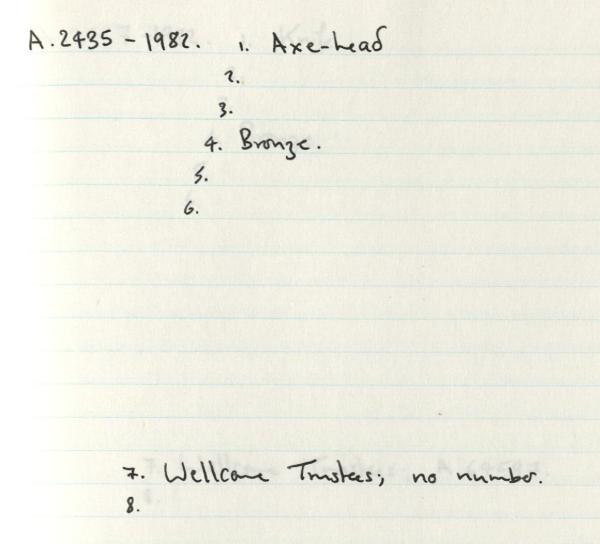 A.2435-1982. 1. Axe-head
2.
3.
4. Bronze.
5.
6.
7. Wellcome Trustees; no number.
8.